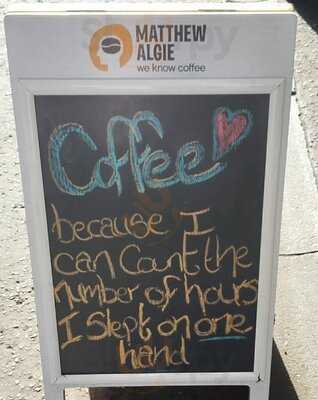 MATTHEW
ALGIE
we know coffee
Coffee
because I
can Count the
number of hours
I Slept on one
hand